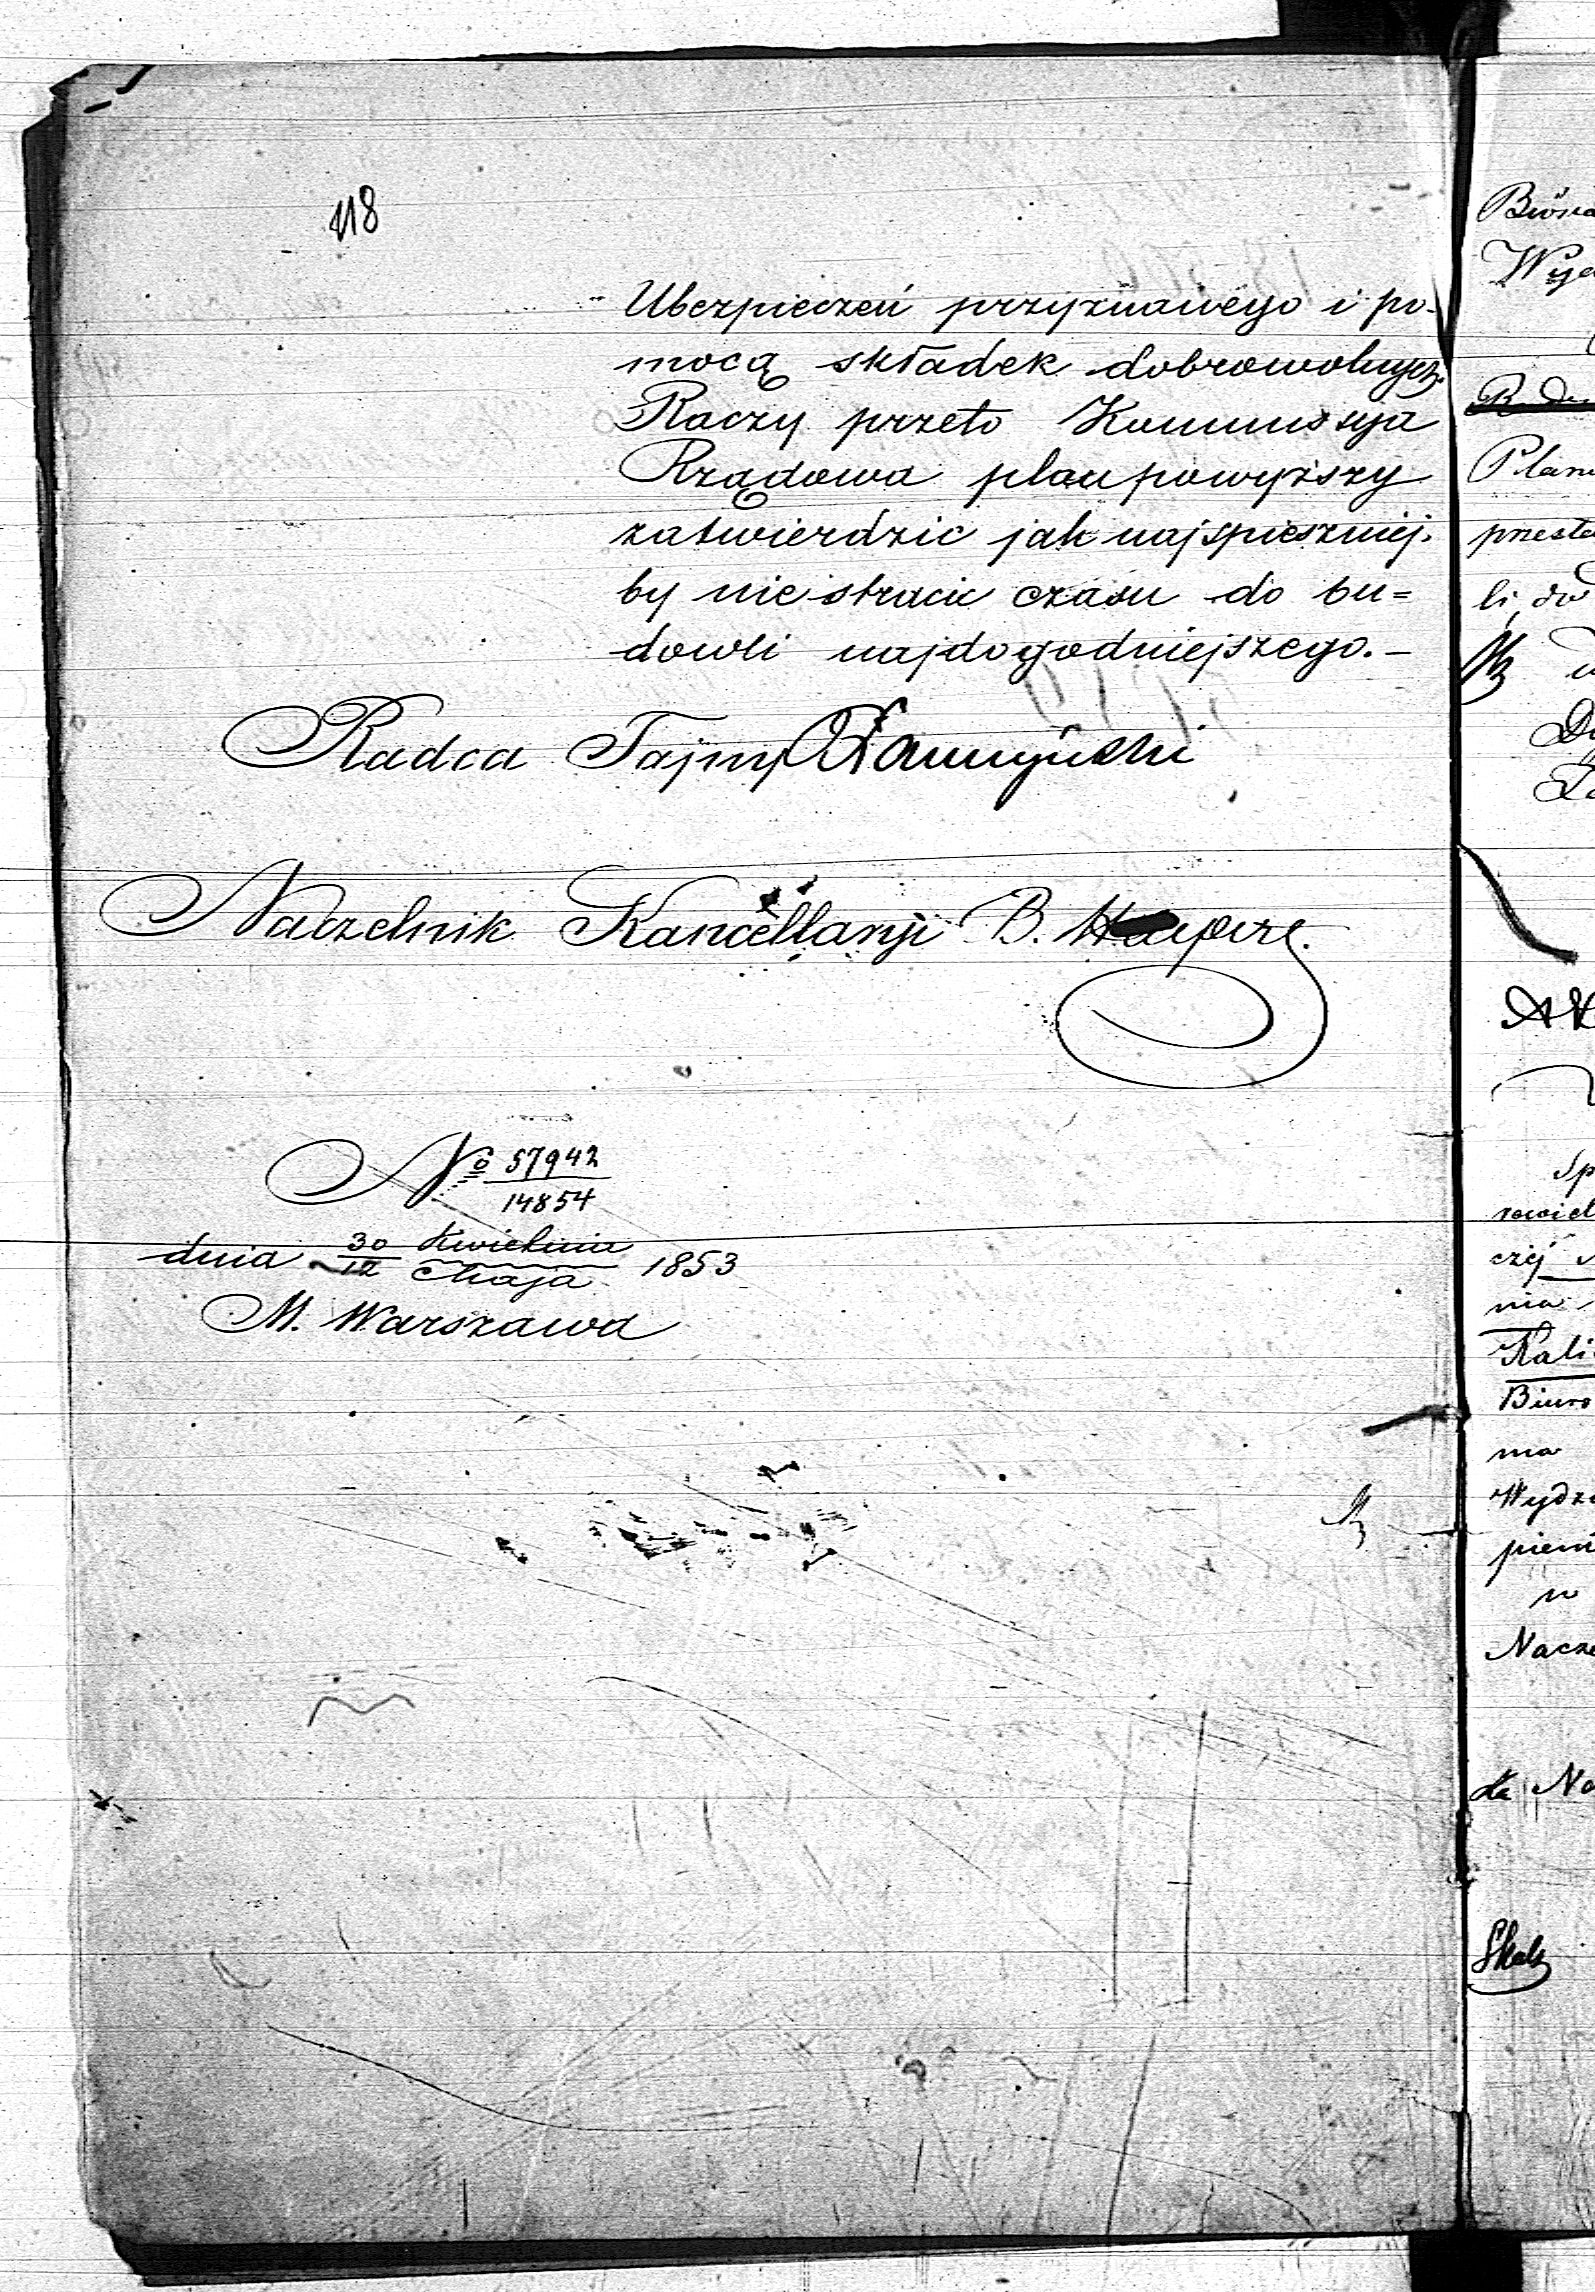 118
Ubezpieczeń przyznawego i po-
mocą składek dobrowolnych.
Raczy przeto Kommissya
Rządowa plan powyższy
zatwierdzić jak najspieszniej.
by nie stracić czasu do bu=
dowli najdogodniejszego.-
Radca Tajny
Naczelnik Kancellaryi B.
No 57942
14854
dnia 30 Kwietnia
12 Maja 1853
M. Warszawa
Plan
li, do
Kali
Biuro
ma
Wydz
w
Nacze